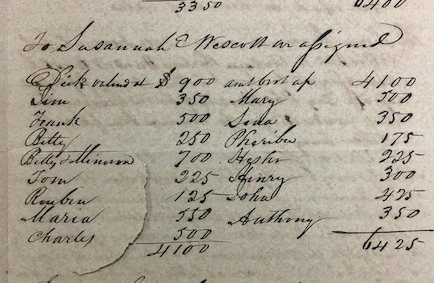 3350 6400
To Susannah E Wescott or assigned
Dick valued at $ 900 amt brot up 4100
350 Mary 500
Frank 500 350
Betty 250 175
Betty & Minerva 700 Hester 225
Tom 225 Henry 300
Reuben 125 John 425
Maria 550 Anthony 350
Charles 500
4100 6425